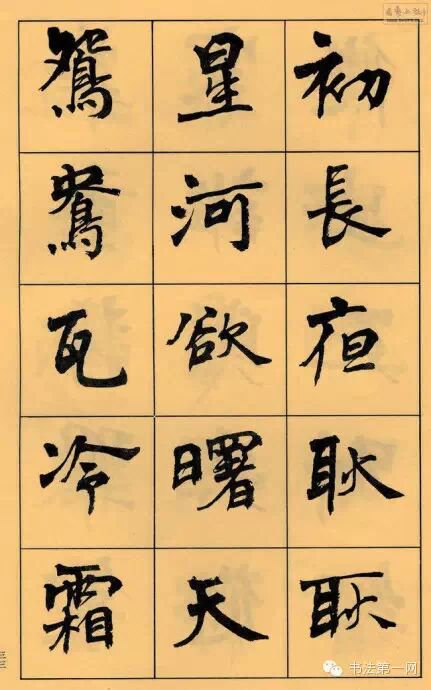 初長夜耿耿
星河欲曙天
鴛鴦瓦冷霜
书法第一网